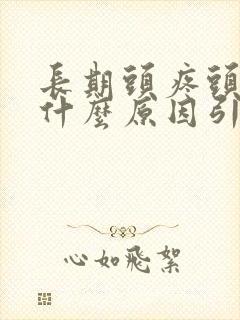 長期頭疼頭
什麼原因引
心如飛絮